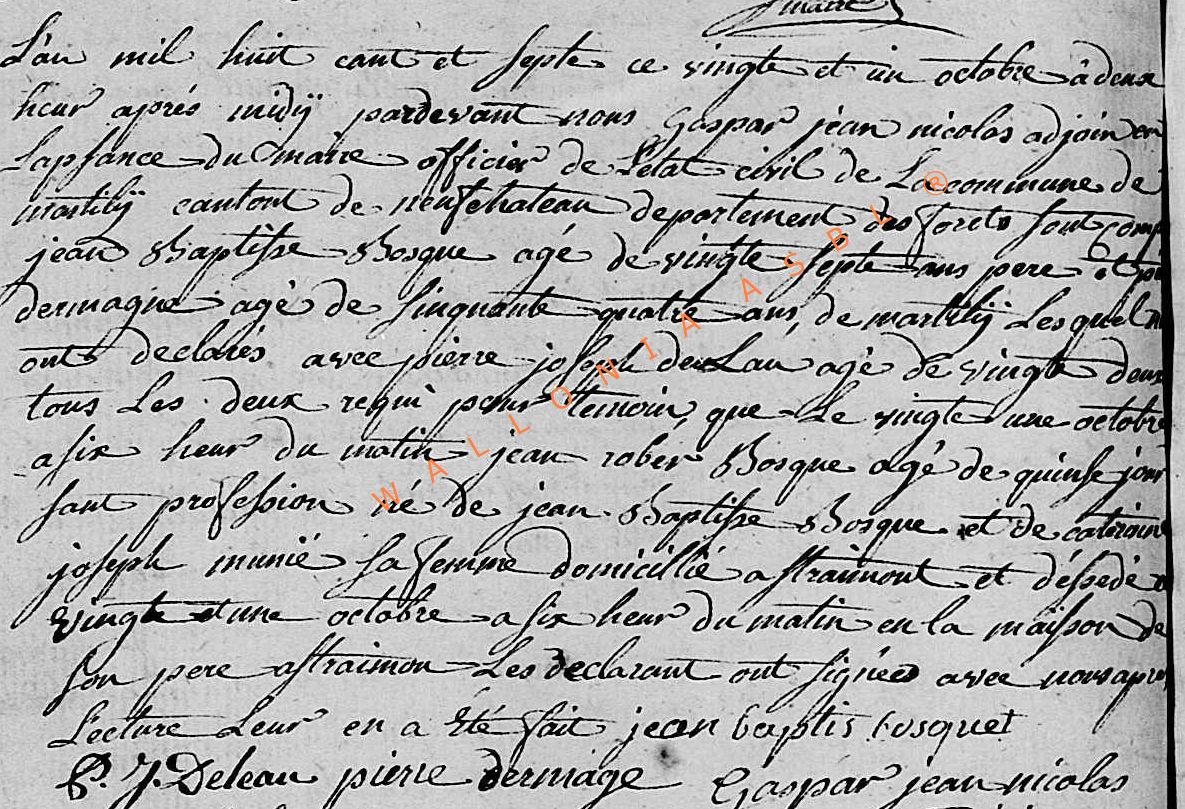 maire
L'an mil huit cant et septe ce vingte et un octobre à deux
heur aprés midÿ pardevant nous Gaspar jean nicolas adjoin en
Lapsance du maire officier de L'etat civil de La commune de
martilÿ cantont de neufchateau departement des forets sont comp
jean Baptisse Bosque agé de vingte septe ans pere et
dermagne agé de sinquante quatre ans, de martilÿ Lesquel
ont declarés avec pierre joseph deLau agé de vingte deux
tous Les deux requi pour temoin, que Le vingte une octobre
a six heur du matin jean rober Bosque agé de quinse jour
sant profession né de jean Baptisse Bosque et de caterinne
joseph munié sa femme domicillié a straimont et déssedé
vingte et une octobre a six heur du matin en la maison de
son pere astraimon Les declarant ont signées avec nous apres
Lecture Leur en a été fait jean baptis bosquet
P. J. Deleau pierre dermage Gaspar jean nicolas
WALLONIA ASBL ®